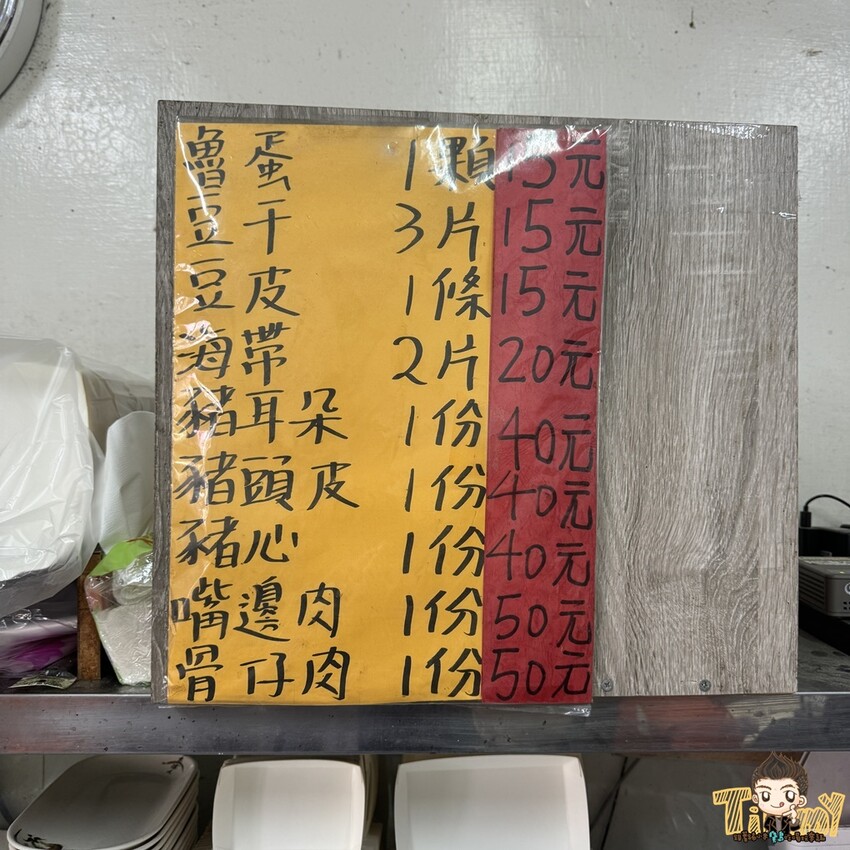 魯蛋 1顆15元
豆干 3片15元
豆皮 1條15元
海帶 2片20元
豬耳朵 1份40元
豬頭皮 1份40元
豬心 1份40元
嘴邊肉 1份50元
骨仔肉 1份50元